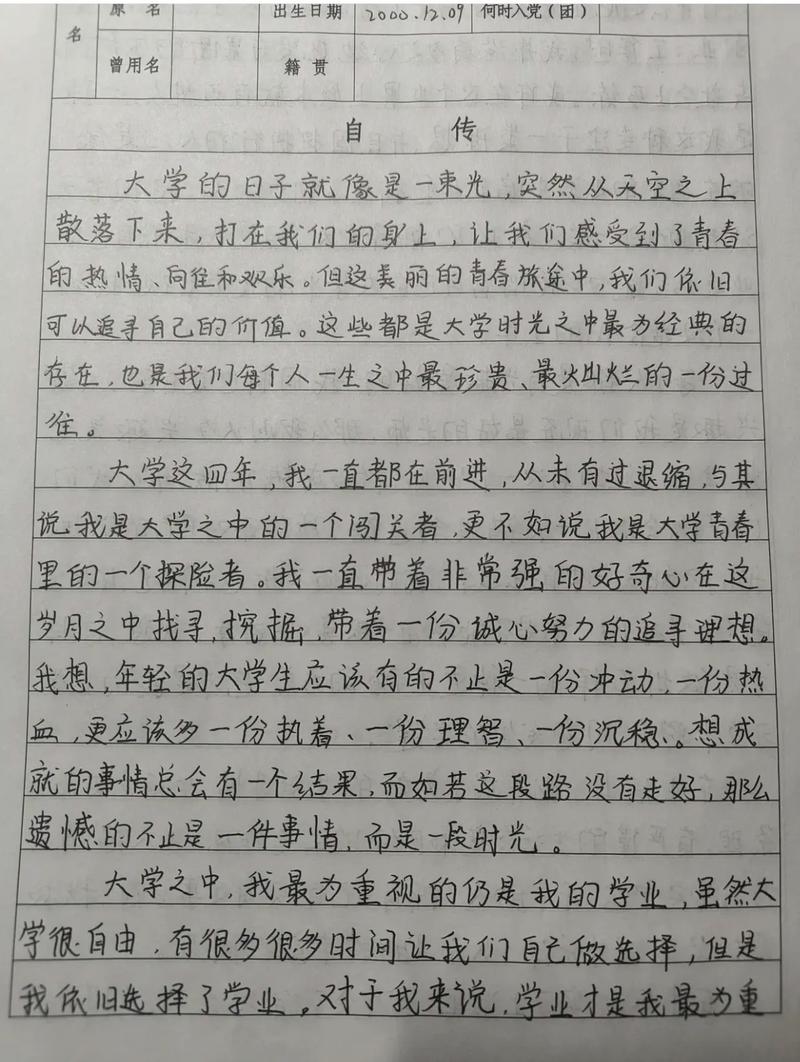 名
原 名
出生日期
2000.12.09
何时入党（团）
曾用名
籍 贯
自 传
大学的日子就像是一束光，突然从天空之上
散落下来，打在我们的身上，让我们感受到了青春
的热情、向往和欢乐。但这美丽的青春旅途中，我们依旧
可以追寻自己的价值。这些都是大学时光之中最为经典的
存在，也是我们每个人一生之中最珍贵、最灿烂的一份过
往。
大学这四年，我一直都在前进，从未有过退缩，与其
说我是大学之中的一个闯关者，更不如说我是大学青春
里的一个探险者。我一直带着非常强的好奇心在这
岁月之中找寻，挖掘，带着一份诚心努力的追寻理想。
我想，年轻的大学生应该有的不止是一份冲动，一份热
血，更应该多一份执着、一份理智、一份沉稳。想成
就的事情总会有一个结果，而如若这段路没有走好，那么
遗憾的不止是一件事情，而是一段时光。
大学之中，我最为重视的仍是我的学业，虽然大
学很自由，有很多很多时间让我们自己做选择，但是
我依旧选择了学业。对于我来说，学业才是我最为重